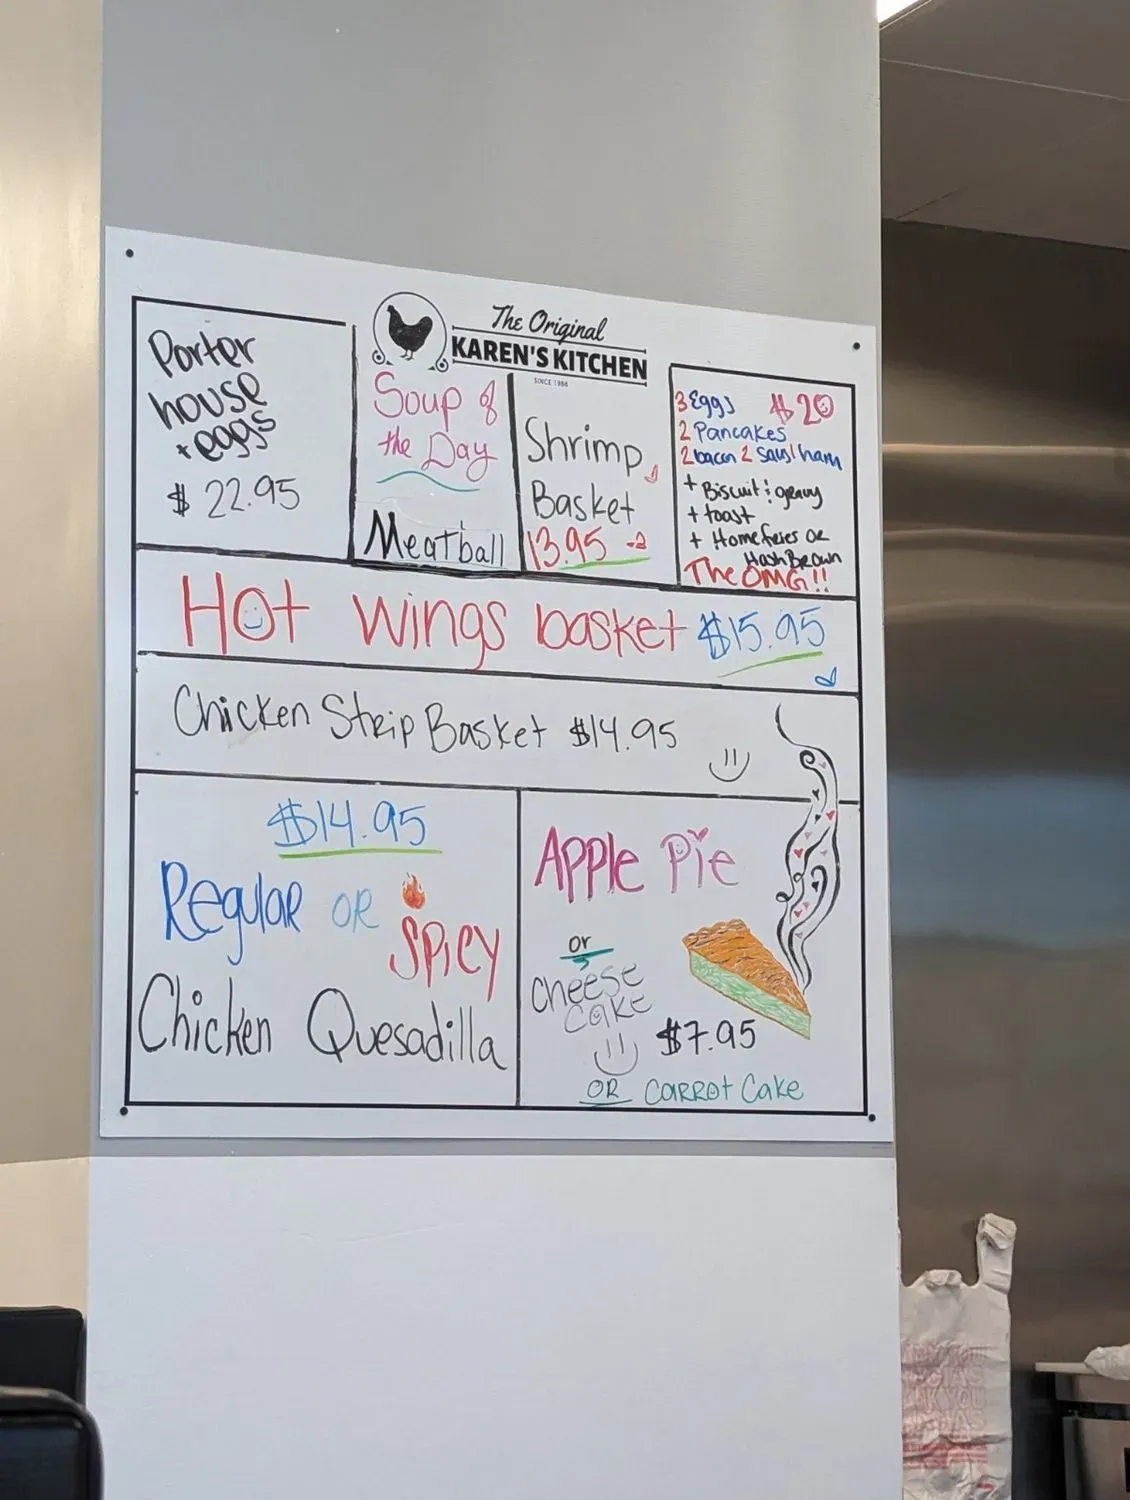 The Original
KAREN'S KITCHEN
SINCE 1986
Porter
house
+ eggs
$ 22.95
Soup of
the Day
Meatball
Shrimp
Basket
13.95
3 Eggs $20
2 Pancakes
2 bacon 2 saus 1 ham
+ Biscuit & gravy
+ toast
+ Homefries OR
Hash Brown
The OMG!!
Hot wings basket $15.95
Chicken Strip Basket $14.95
$14.95
Regular OR
Spicy
Chicken Quesadilla
Apple Pie
or
Cheese
Cake
$7.95
OR Carrot Cake